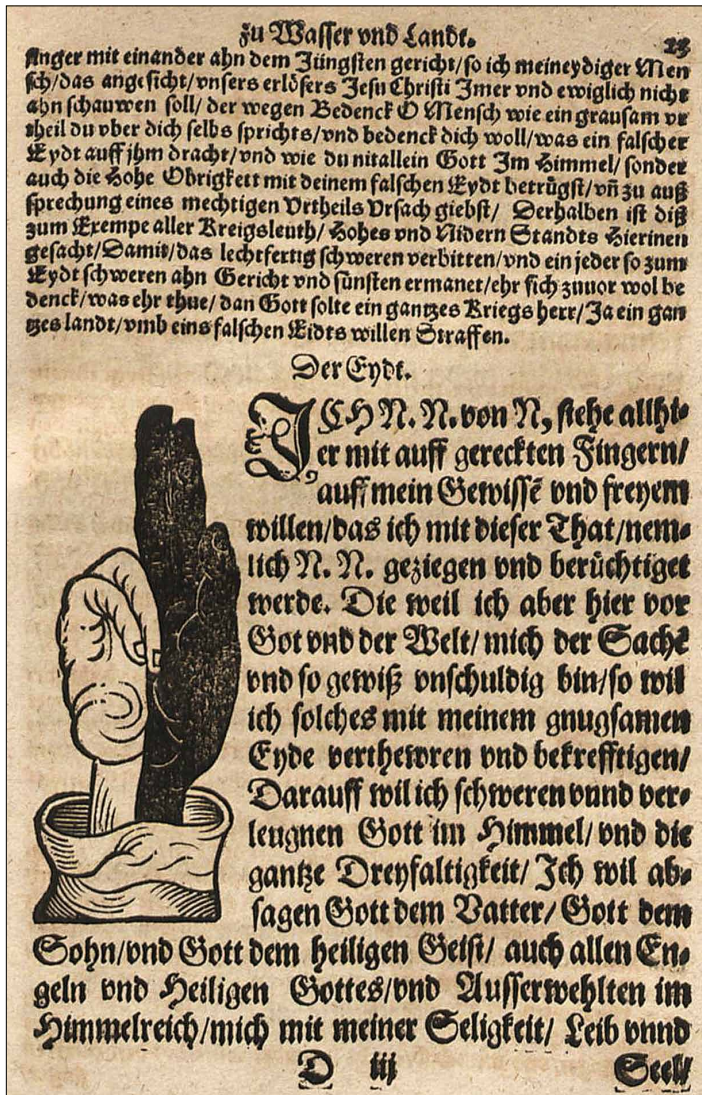 zu Wasser vnd Landt. 23
finger mit einander ahn dem Jüngsten gericht/so ich meineydiger Men
sch/das angesicht/vnsers erlösers Jesu Christi Imer vnd ewiglich nicht
ahn schauwen soll/ der wegen Bedenck O Mensch wie ein grausam vr
theil du vber dich selbs sprichts/vnd bedenck dich woll/was ein falscher
Eydt auff jhm dracht/vnd wie du nit allein Gott Im Himmel/ sonder
auch die Hohe Obrigkett mit deinem falschen Eydt betrügst/vñ zu auß
sprechung eines mechtigen Vrtheils Vrsach giebst/ Derhalben ist diß
zum Exempe aller Kreigsleuth/ Hohes vnd Nidern Standts Hierinen
gesacht/Damit/das lechtfertig schweren verbitten/vnd ein jeder so zum
Eydt schweren ahn Gericht vnd sünsten ermanet/ehr sich zuuor wol be
denck/was ehr thue/ dan Gott solte ein gantzes Kriegs herr/Ja ein gan
tzes landt/vmb eins falschen Eidts willen Straffen.
Der Eydt.
ICH N. N. von N, stehe allhi-
er mit auff gereckten Fingern/
auff mein Gewissẽ vnd freyem
willen/das ich mit dieser That/nem-
lich N. N. geziegen vnd berüchtiget
werde. Die weil ich aber hier vor
Got vnd der Welt/ mich der Sachẽ
vnd so gewiß vnschuldig bin/so wil
ich solches mit meinem gnugsamen
Eyde verthewren vnd bekrefftigen/
Darauff wil ich schweren vnnd ver-
leugnen Gott im Himmel/ vnd die
gantze Dreyfaltigkeit/ Ich wil ab-
sagen Gott dem Vatter/ Gott dem
Sohn/vnd Gott dem heiligen Geist/ auch allen En-
geln vnd Heiligen Gottes/vnd Ausserwehlten im
Himmelreich/mich mit meiner Seligkeit/ Leib vnnd
D iij Seel/